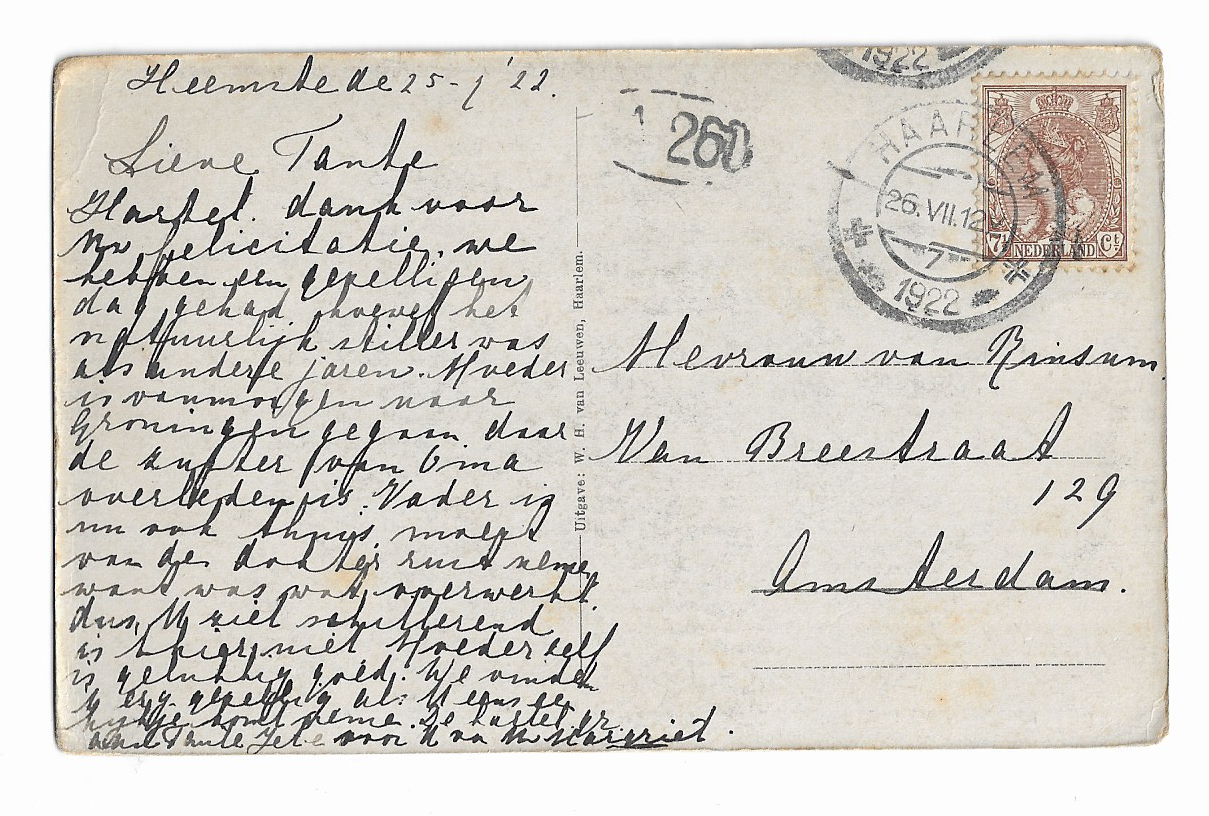 Heemstede 25-7 '22.
Lieve Tante
Hartel. dank voor
Uw felicitatie, we
hebben een gezelligen
dag gehad, hoewel het
natuurlijk stiller was
als andere jaren. Moeder
is vanmorgen naar
Groningen gegaan daar
de zuster van Oma
overleden is. Vader is
nu ook thuis, moest
van de dokter rust neme
want was wat overwerkt.
dus U ziet schitterend
is 't hier niet Moeder zelf
is gelukkig goed. We vinden
't erg gezellig als U eens een
kijkje komt neme. De hartel. gr.
aan Tante Jet voor U van Uw Margriet.
Uitgave: W. H. van Leeuwen, Haarlem.
1922
260
HAARLEM
26.VII.12
7
1922
7½ NEDERLAND Ct
Mevrouw van Rinsum
Van Breestraat
129
Amsterdam.